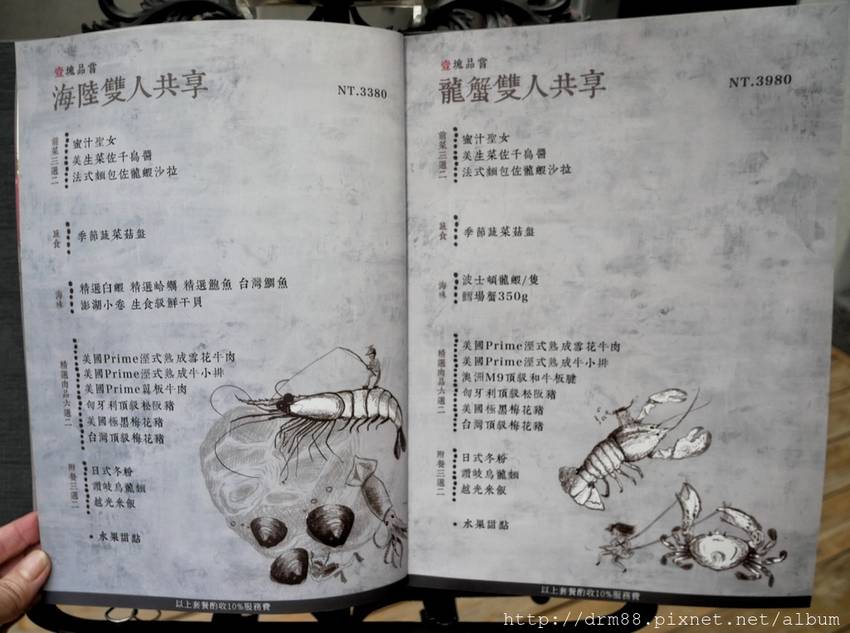 壹塊品嘗
海陸雙人共享
NT.3380
前菜三選二
蜜汁聖女
美生菜佐千島醬
法式麵包佐龍蝦沙拉
蔬食
季節蔬菜菇盤
海味
精選白蝦 精選蛤蠣 精選鮑魚 台灣鯛魚
澎湖小卷 生食級鮮干貝
精選肉品六選二
美國Prime溼式熟成雪花牛肉
美國Prime溼式熟成牛小排
美國Prime翼板牛肉
匈牙利頂級松阪豬
美國極黑梅花豬
台灣頂級梅花豬
附餐三選二
日式冬粉
讚岐烏龍麵
越光米飯
水果甜點
以上套餐酌收10%服務費
壹塊品嘗
龍蟹雙人共享
NT.3980
前菜三選二
蜜汁聖女
美生菜佐千島醬
法式麵包佐龍蝦沙拉
蔬食
季節蔬菜菇盤
海味
波士頓龍蝦/隻
鱈場蟹350g
精選肉品六選二
美國Prime溼式熟成雪花牛肉
美國Prime溼式熟成牛小排
澳洲M9頂級和牛板腱
匈牙利頂級松阪豬
美國極黑梅花豬
台灣頂級梅花豬
附餐三選二
日式冬粉
讚岐烏龍麵
越光米飯
水果甜點
以上套餐酌收10%服務費
http://drm88.pixnet.net/album